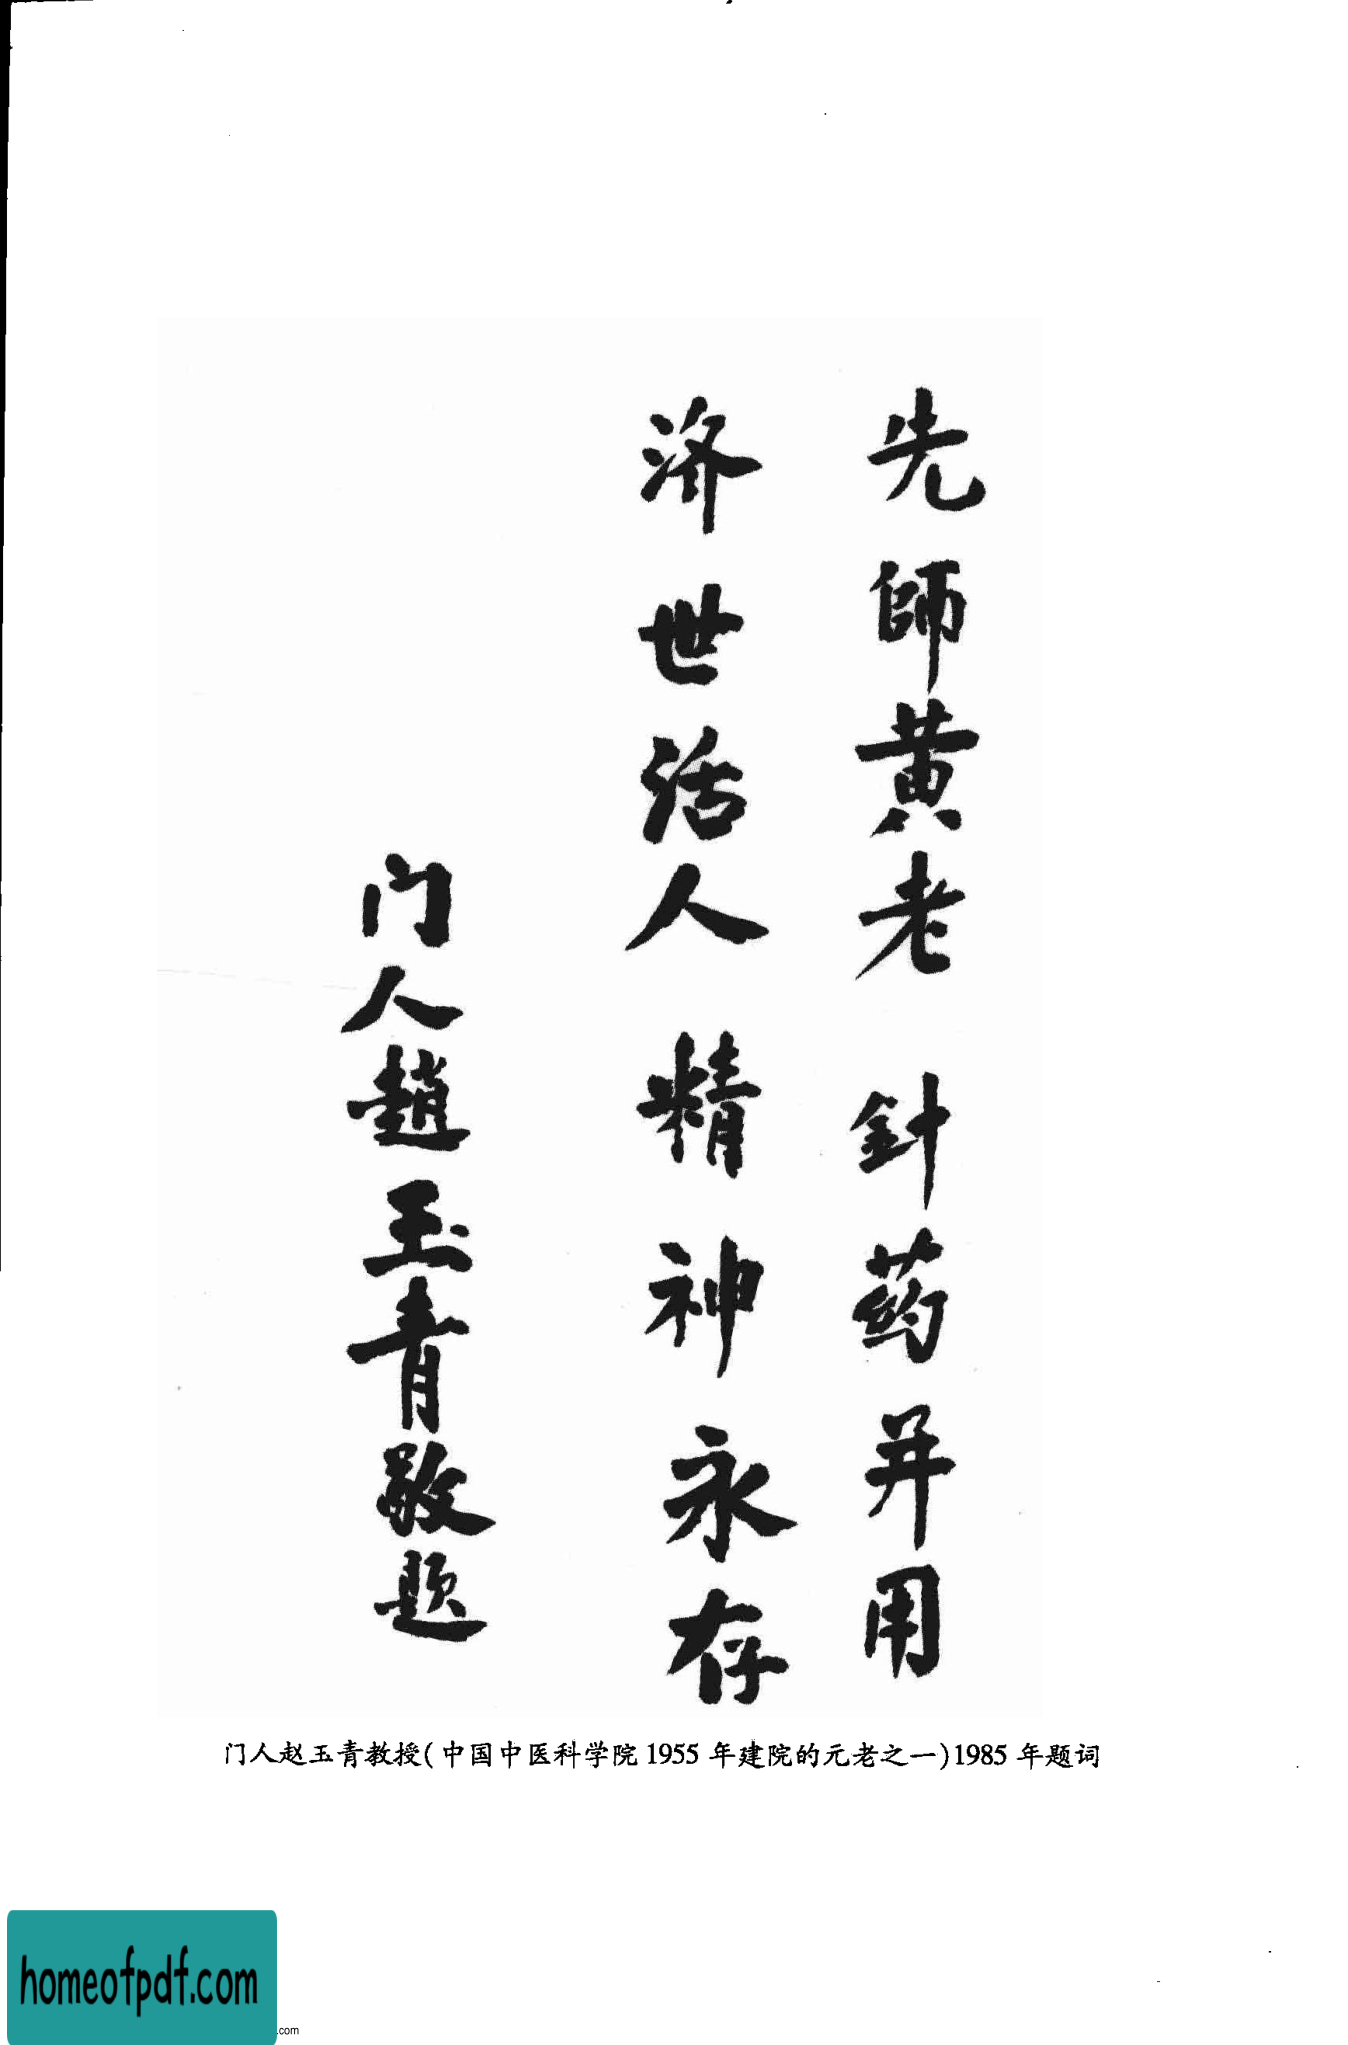 先師黄老 針药并用
济世活人 精神永存
门人趙玉青敬题
门人赵玉青教授(中国中医科学院1955年建院的元老之一)1985年题词
homeofpdf.com
.com